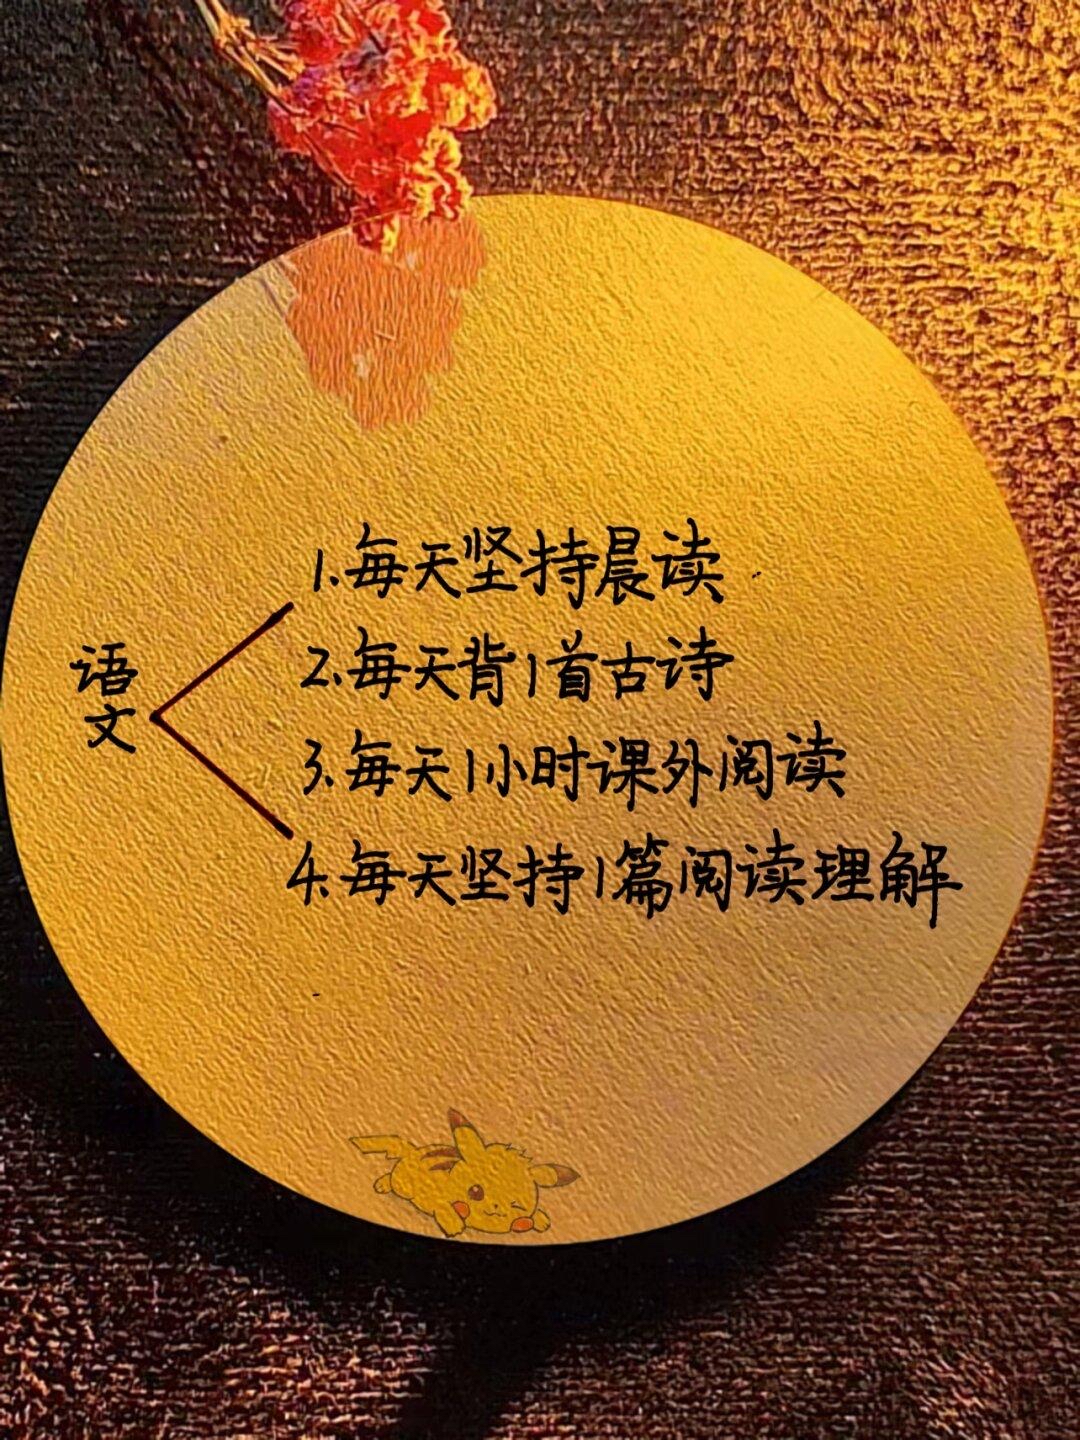 语文
1.每天坚持晨读
2.每天背1首古诗
3.每天1小时课外阅读
4.每天坚持1篇阅读理解